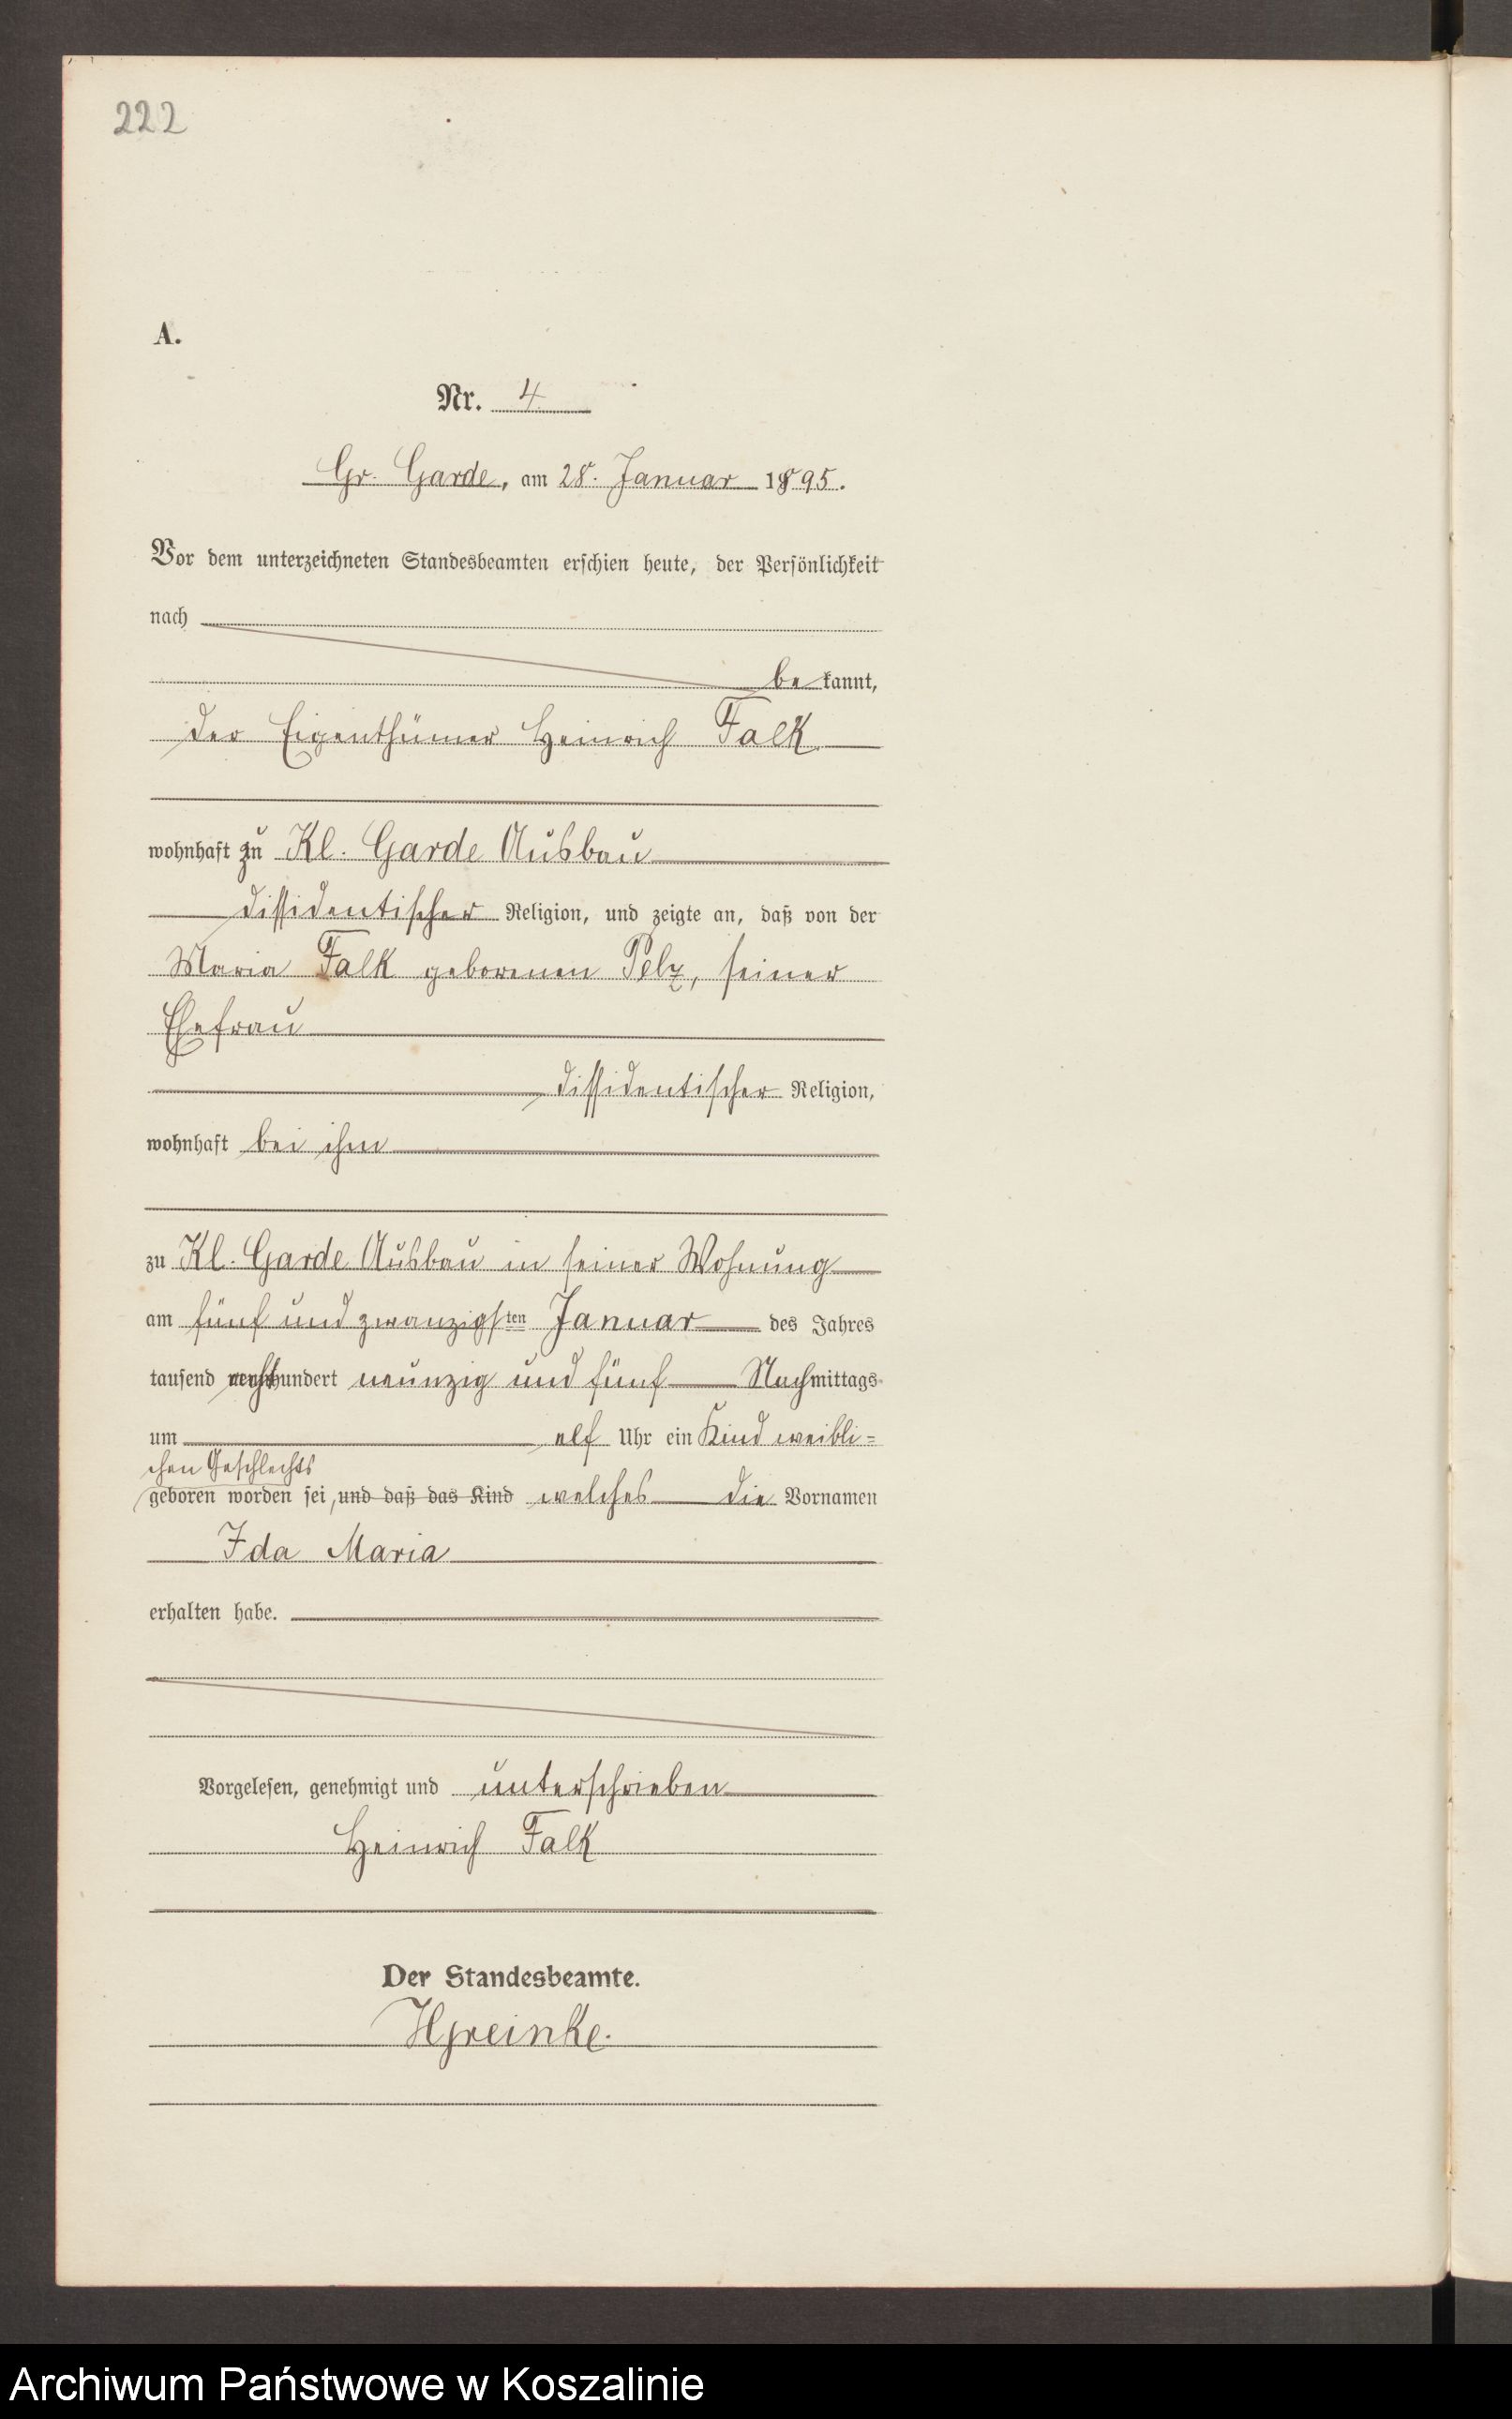 222
A.
Nr. 4
Gr. Garde, am 28. Januar 1895.
Vor dem unterzeichneten Standesbeamten erschien heute, der Persönlichkeit
nach
be kannt,
der Eigenthümer Heinrich Falk
wohnhaft zu Kl. Garde Ausbau
dissidentischer Religion, und zeigte an, daß von der
Maria Falk geborenen Pelz, seiner
Ehefrau
dissidentischer Religion,
wohnhaft bei ihm
zu Kl. Garde Ausbau in seiner Wohnung
am fünf und zwanzigsten Januar des Jahres
tausend achthundert neunzig und fünf Nachmittags
um elf Uhr ein Kind weibli=
chen Geschlechts
geboren worden sei, und daß das Kind welches die Vornamen
Ida Maria
erhalten habe.
Vorgelesen, genehmigt und unterschrieben
Heinrich Falk
Der Standesbeamte.
Archiwum Państwowe w Koszalinie